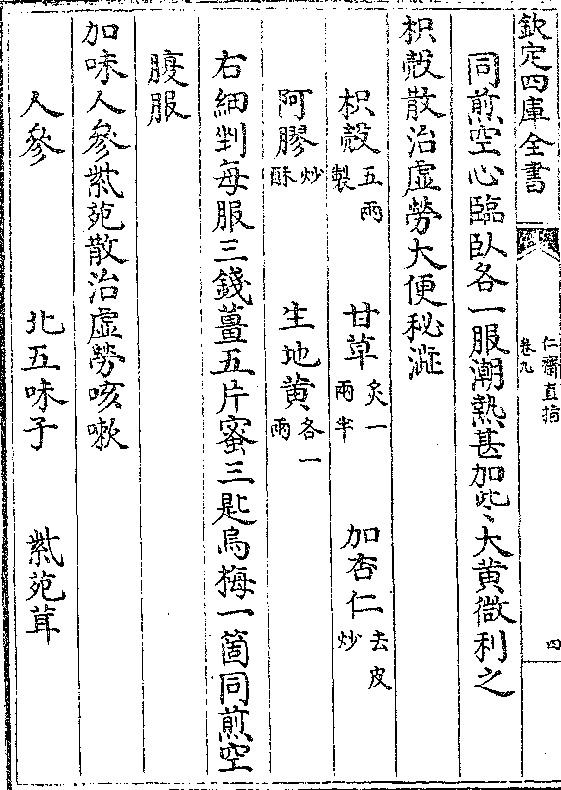 欽定四庫全書
仁齋直指
卷九
四
同煎空心臨臥各一服潮熱甚加些大黄微利之
枳殼散治虛勞大便秘澁
枳殼五兩製 甘草炙一兩半 加杏仁去皮炒
阿膠炒酥 生地黄各一兩
右細剉每服三錢薑五片蜜三匙烏梅一箇同煎空
腹服
加味人參紫菀散治虛勞咳嗽
人參 北五味子 紫菀茸